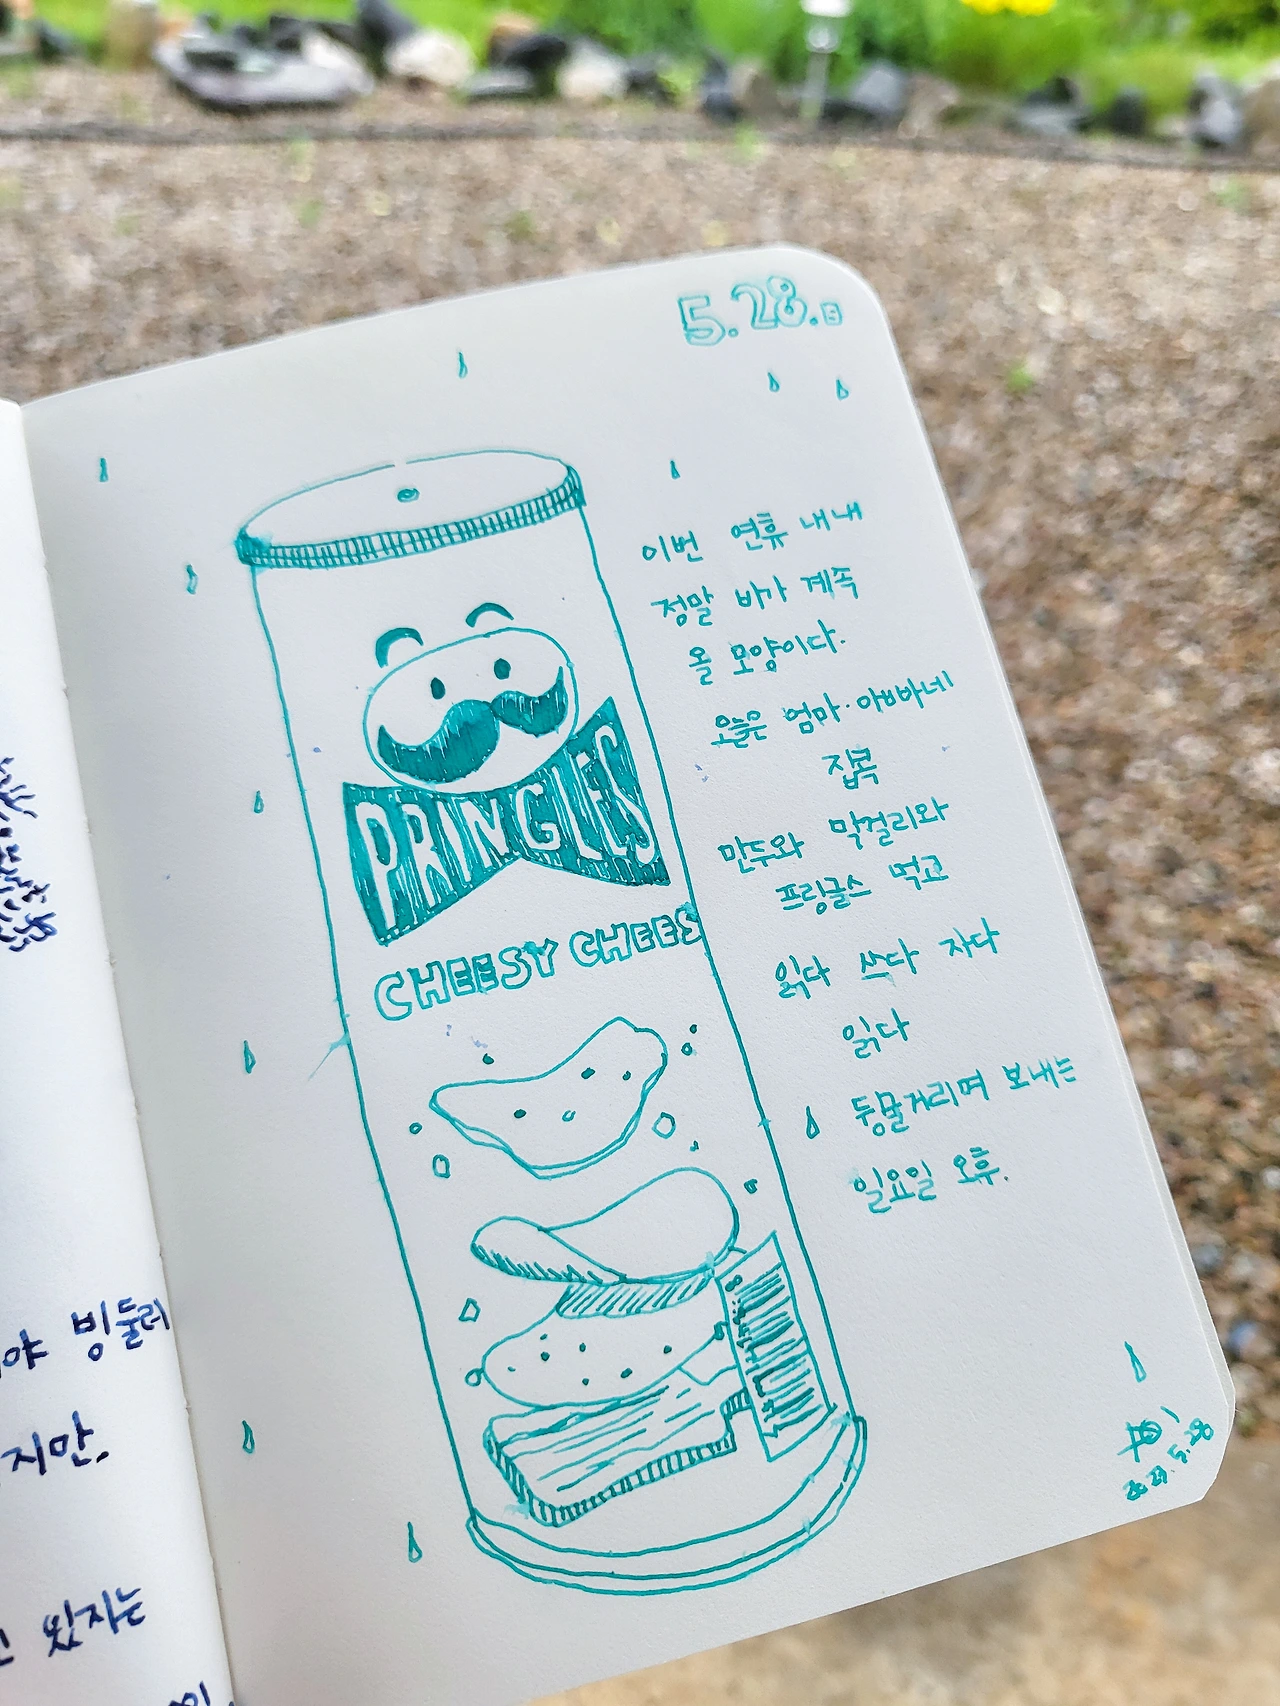 5.28.日
이번 연휴 내내
정말 비가 계속
올 모양이다.
오늘은 엄마·아빠네
집콕
만두와 막걸리와
프링글스 먹고
읽다 쓰다 자다
읽다
뒹굴거리며 보내는
일요일 오후.
PRINGLES
CHEESY CHEES
5.28
빙둘러
지만.
있자는